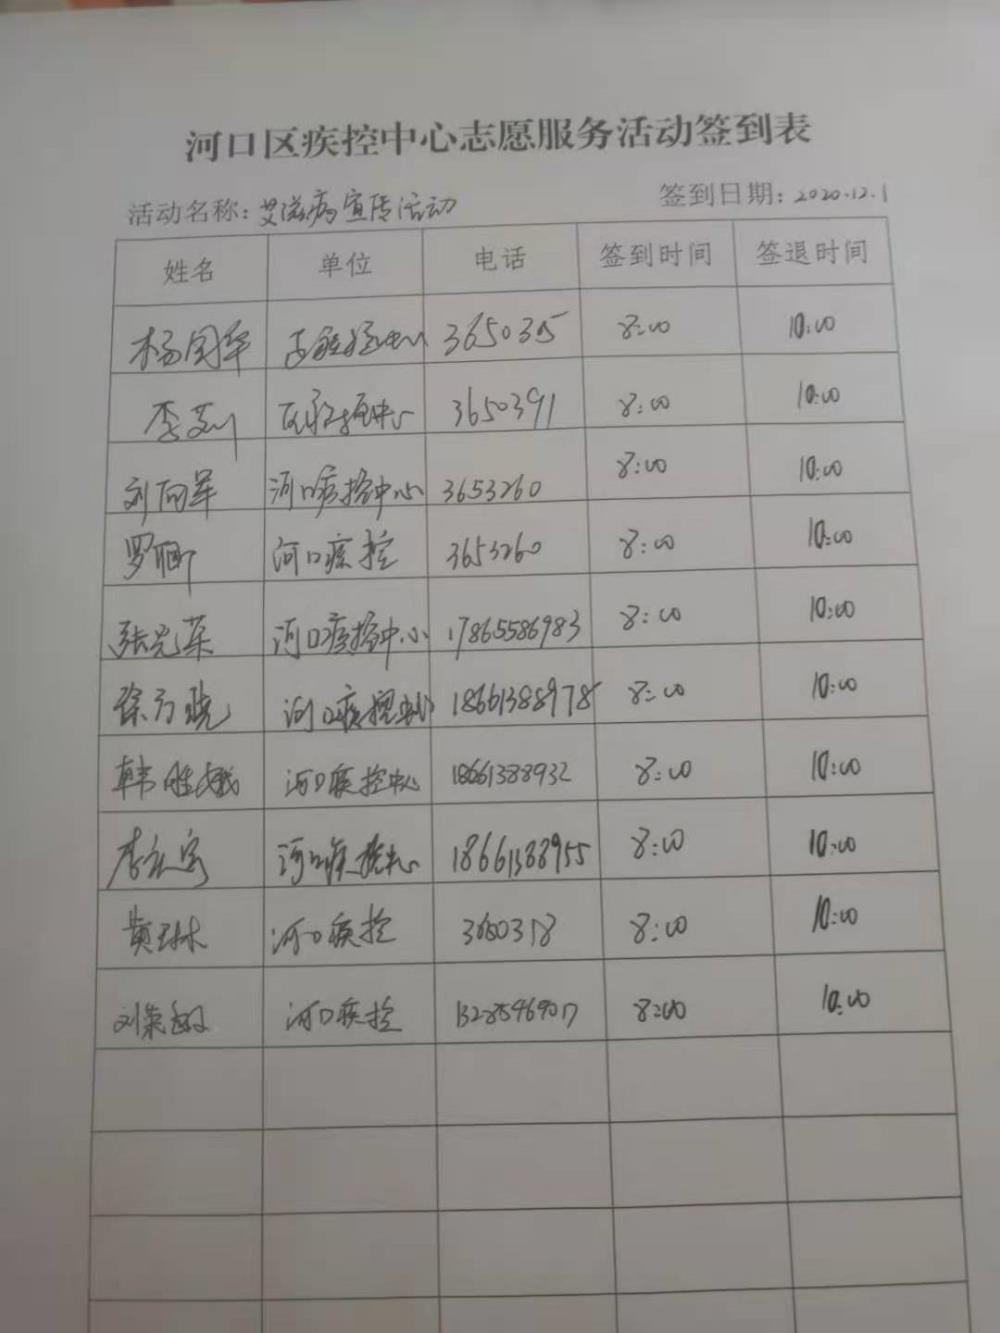 河口区疾控中心志愿服务活动签到表
活动名称：艾滋病宣传活动 签到日期：2020.12.1
姓名 单位 电话 签到时间 签退时间
杨国军 3650395 8:00 10:00
李 疾控中心 3650391 8:00 10:00
刘向军 河口疾控中心 3653260 8:00 10:00
罗 河口疾控 3653260 8:00 10:00
张光荣 河口疾控中心 17865586983 8:00 10:00
徐 晓 河口疾控中心 18661388978 8:00 10:00
韩胜娥 河口疾控中心 18661388932 8:00 10:00
李 河口疾控中心 18661388955 8:00 10:00
黄琳 河口疾控 8:00 10:00
刘荣 河口疾控 8:00 10:00